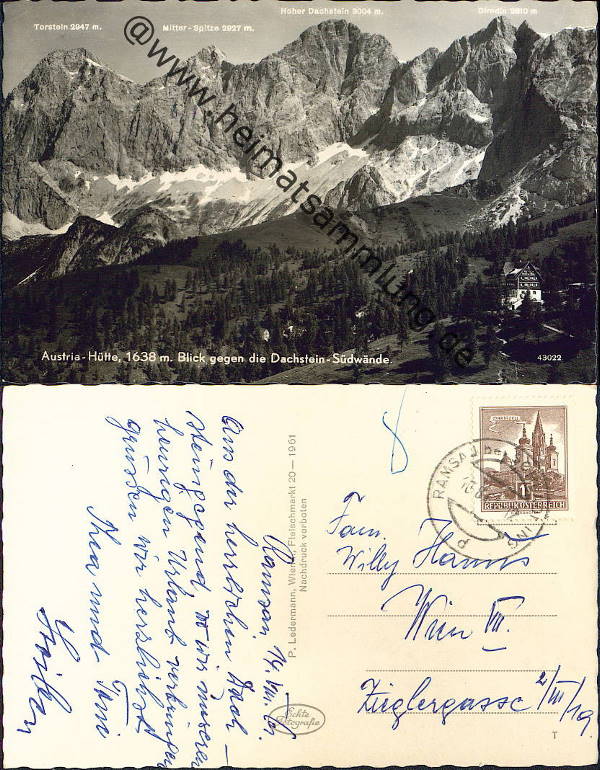 Torstein 2947 m.
Mitter-Spitze 2927 m.
Hoher Dachstein 3004 m.
Dirndln 2810 m
@www.heimatsammlung.de
Austria-Hütte, 1638 m. Blick gegen die Dachstein-Südwände.
43022
Ramsau, 14. VIII. 61.
Aus der herrlichen Dach-
steingegend, wo wir unseren
heurigen Urlaub verbringen
grüssen wir herzlichst
Thea und Toni
P. Ledermann, Wien I, Fleischmarkt 20 — 1961
Nachdruck verboten
Echte
Fotografie
RAMSAU
REPUBLIK ÖSTERREICH
Fam.
Willy
Wien VII.
Zieglergasse
T